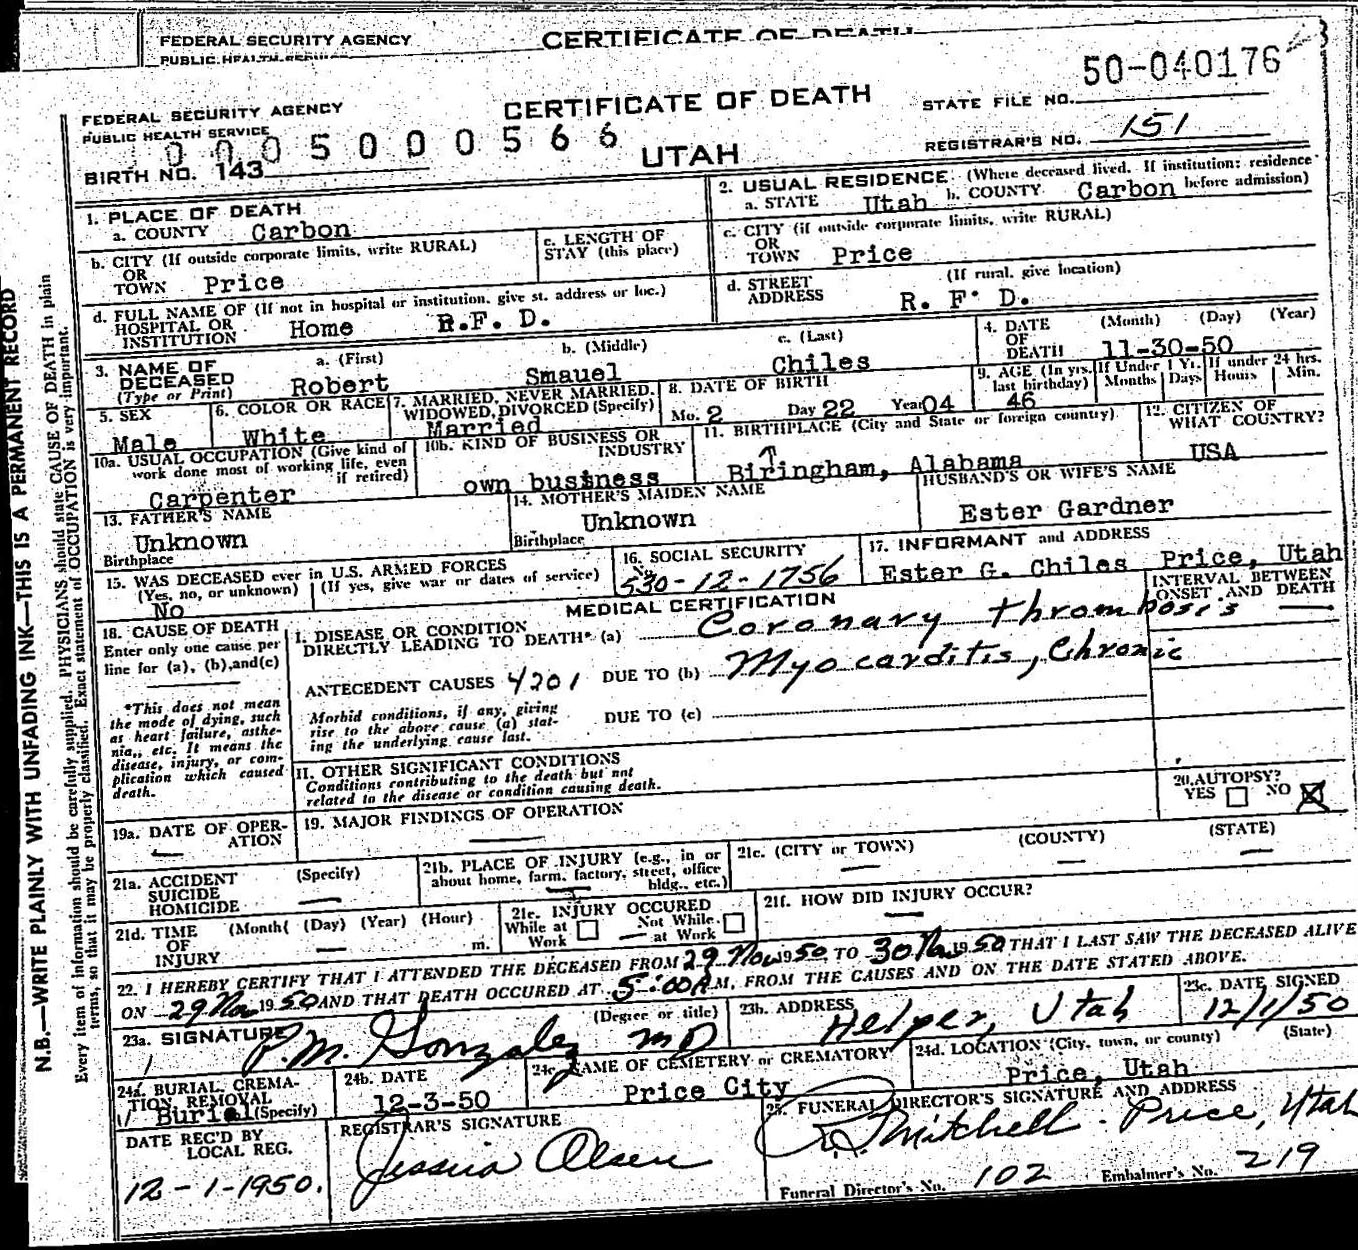 FEDERAL SECURITY AGENCY CERTIFICATE OF DEATH
PUBLIC HEALTH SERVICE
50-040176
FEDERAL SECURITY AGENCY CERTIFICATE OF DEATH STATE FILE NO.
PUBLIC HEALTH SERVICE
0005000566
UTAH
REGISTRAR'S NO. 151
BIRTH NO. 143
1. PLACE OF DEATH
a. COUNTY Carbon
2. USUAL RESIDENCE (Where deceased lived. If institution: residence before admission)
a. STATE Utah b. COUNTY Carbon
b. CITY (If outside corporate limits, write RURAL)
OR
TOWN Price
c. LENGTH OF
STAY (this place)
c. CITY (if outside corporate limits, write RURAL)
OR
TOWN Price
d. FULL NAME OF (If not in hospital or institution, give st. address or loc.)
HOSPITAL OR
INSTITUTION Home R.F.D.
d. STREET (If rural, give location)
ADDRESS R. F. D.
3. NAME OF
DECEASED
(Type or Print)
a. (First) b. (Middle) c. (Last)
Robert Smauel Chiles
4. DATE (Month) (Day) (Year)
OF
DEATH 11-30-50
5. SEX
Male
6. COLOR OR RACE
White
7. MARRIED, NEVER MARRIED,
WIDOWED, DIVORCED (Specify)
Married
8. DATE OF BIRTH
Mo. 2 Day 22 Year 04
9. AGE (In yrs. last birthday) If Under 1 Yr. If under 24 hrs.
Months Days Hours Min.
46
10a. USUAL OCCUPATION (Give kind of
work done most of working life, even
if retired)
Carpenter
10b. KIND OF BUSINESS OR
INDUSTRY
own business
11. BIRTHPLACE (City and State or foreign country)
Biringham, Alabama
12. CITIZEN OF
WHAT COUNTRY?
USA
13. FATHER'S NAME
Unknown
Birthplace
14. MOTHER'S MAIDEN NAME
Unknown
Birthplace
HUSBAND'S OR WIFE'S NAME
Ester Gardner
15. WAS DECEASED ever in U.S. ARMED FORCES
(Yes, no, or unknown) (If yes, give war or dates of service)
No
16. SOCIAL SECURITY
No.
530-12-1756
17. INFORMANT and ADDRESS
Ester G. Chiles Price, Utah
MEDICAL CERTIFICATION
INTERVAL BETWEEN
ONSET AND DEATH
18. CAUSE OF DEATH
Enter only one cause per
line for (a), (b), and (c)
I. DISEASE OR CONDITION
DIRECTLY LEADING TO DEATH* (a) Coronary thrombosis
ANTECEDENT CAUSES 4201 DUE TO (b) Myocarditis, Chronic
*This does not mean
the mode of dying, such
as heart failure, asthe-
nia, etc. It means the
disease, injury, or com-
plication which caused
death.
Morbid conditions, if any, giving
rise to the above cause (a) stat-
ing the underlying cause last.
DUE TO (c)
II. OTHER SIGNIFICANT CONDITIONS
Conditions contributing to the death but not
related to the disease or condition causing death.
20. AUTOPSY?
YES NO
19a. DATE OF OPER-
ATION
19. MAJOR FINDINGS OF OPERATION
21a. ACCIDENT (Specify)
SUICIDE
HOMICIDE
21b. PLACE OF INJURY (e.g., in or
about home, farm, factory, street, office
bldg., etc.)
21c. (CITY or TOWN) (COUNTY) (STATE)
21d. TIME (Month( (Day) (Year) (Hour)
OF
INJURY m.
21e. INJURY OCCURED
While at Work Not While at Work
21f. HOW DID INJURY OCCUR?
22. I HEREBY CERTIFY THAT I ATTENDED THE DECEASED FROM 29 Nov 1950 TO 30 Nov 1950 THAT I LAST SAW THE DECEASED ALIVE
ON 29 Nov 1950 AND THAT DEATH OCCURED AT 5:00 A M, FROM THE CAUSES AND ON THE DATE STATED ABOVE.
23a. SIGNATURE (Degree or title)
P.M. Gonzalez MD
23b. ADDRESS
Helper, Utah
23c. DATE SIGNED
12/1/50
24a. BURIAL, CREMA-
TION REMOVAL
Burial (Specify)
24b. DATE
12-3-50
24c. NAME OF CEMETERY or CREMATORY
Price City
24d. LOCATION (City, town, or county) (State)
Price, Utah
DATE REC'D BY
LOCAL REG.
12-1-1950.
REGISTRAR'S SIGNATURE
Jessica Olsen
25. FUNERAL DIRECTOR'S SIGNATURE AND ADDRESS
Mitchell - Price, Utah
Funeral Director's No. 102 Embalmer's No. 219
N.B.—WRITE PLAINLY WITH UNFADING INK—THIS IS A PERMANENT RECORD
Every item of information should be carefully supplied. PHYSICIANS should state CAUSE OF DEATH in plain
terms, so that it may be properly classified. Exact statement of OCCUPATION is very important.